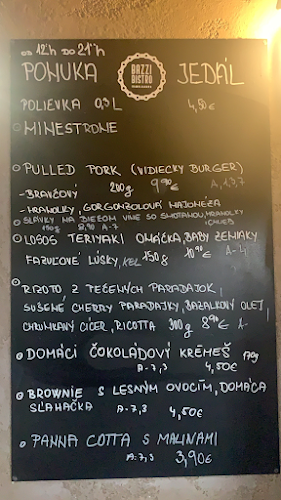 OD 12h DO 21h
PONUKA BAZZI BISTRO JEDÁL
POLIEVKA 0,3L 4,50€
MINESTRONE
PULLED PORK (VIDIECKY BURGER)
-BRAVČOVÝ 200g 9,90€ A,1,3,7
-HRANOLKY, GORGONZOLOVÁ MAJONÉZA
SLÁVKY NA BIELOM VÍNE SO SMOTANOU, HRANOLKY
150g 8,90 A-7 CHLIEB
LOSOS TERIYAKI OMÁČKA, BABY ZEMIAKY
FAZUĽOVÉ LUSKY, KEL 150g 10,90€ A-4
RIZOTO Z PEČENÝCH PARADAJOK,
SUŠENÉ CHERRY PARADAJKY, BAZALKOVÝ OLEJ,
CHRUMKAVÝ CÍCER, RICOTTA 300g 8,90€ A-
DOMÁCI ČOKOLÁDOVÝ KRÉMEŠ 170g
A-7,3 4,50€
BROWNIE S LESNÝM OVOCÍM, DOMÁCA
ŠĽAHAČKA A-7,3 4,50€
PANNA COTTA S MALINAMI
A-7,3 3,90€